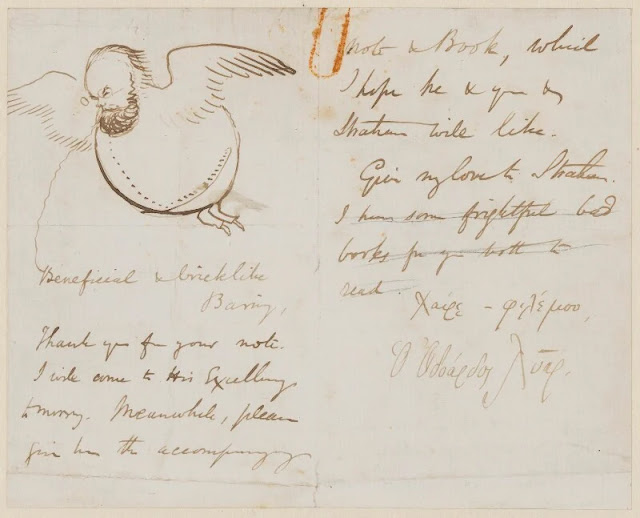 Beneficial & bricklike
Baring,
Thank you for your note.
I will come to His Excellency
tomorry. Meanwhile, please
give him the accompanying
note & Book, which
I hope he & you &
Strahan will like.
Give my love to Strahan.
I have some frightful bad
books for you both to
read.
Χαῖρε – φιλέ μου,
Ὁ Ἐδвάρδος Λύαρ.